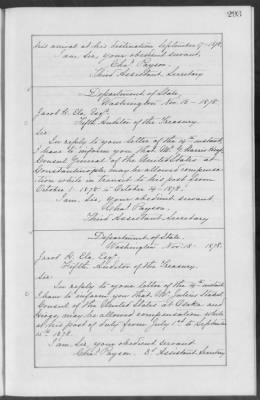 293
his arrival at his destination September 9-1878.
I am, Sir, your obedient servant,
Chas. Payson.
Third Assistant Secretary
Department of State,
Washington Nov. 18-1878.
Jacob H. Ela, Esqr.
Fifth Auditor of the Treasury.
Sir.
In reply to your letter of the 4th instant
I have to inform you that Mr. G. Harris Heap
Consul General of the United States at
Constantinople, may be allowed compensation
while in transit to his post from
October 1. 1878 to October 24-1878.
I am, Sir, your obedient servant
Chas. Payson.
Third Assistant Secretary
Department of State.
Washington Nov. 18-1878.
Jacob H. Ela, Esqr.
Fifth Auditor of the Treasury.
Sir
In reply to your letter of the 4th instant
I have to inform you that Mr. Julius Stahel
Consul of the United States at Osaka and
Hiogo may be allowed compensation while
at his post of duty from July 1st to September
1878.
I am, Sir, your obedient servant
Chas. Payson. 3d Assistant Secretary